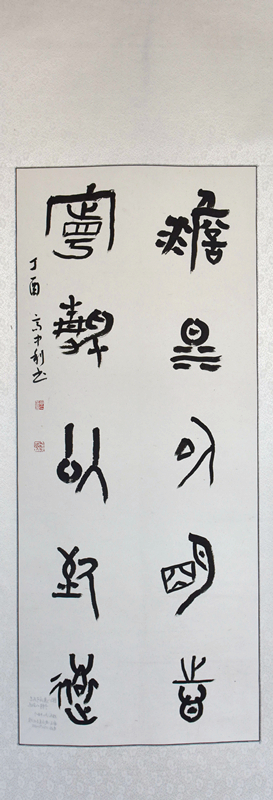 澹泊以明志
寧靜以致遠
丁酉 書